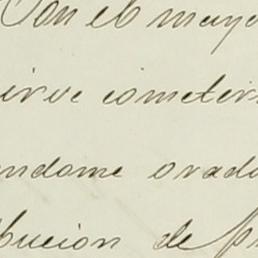 Con el mayo
irve cometer
ndome orado
bucion de pr